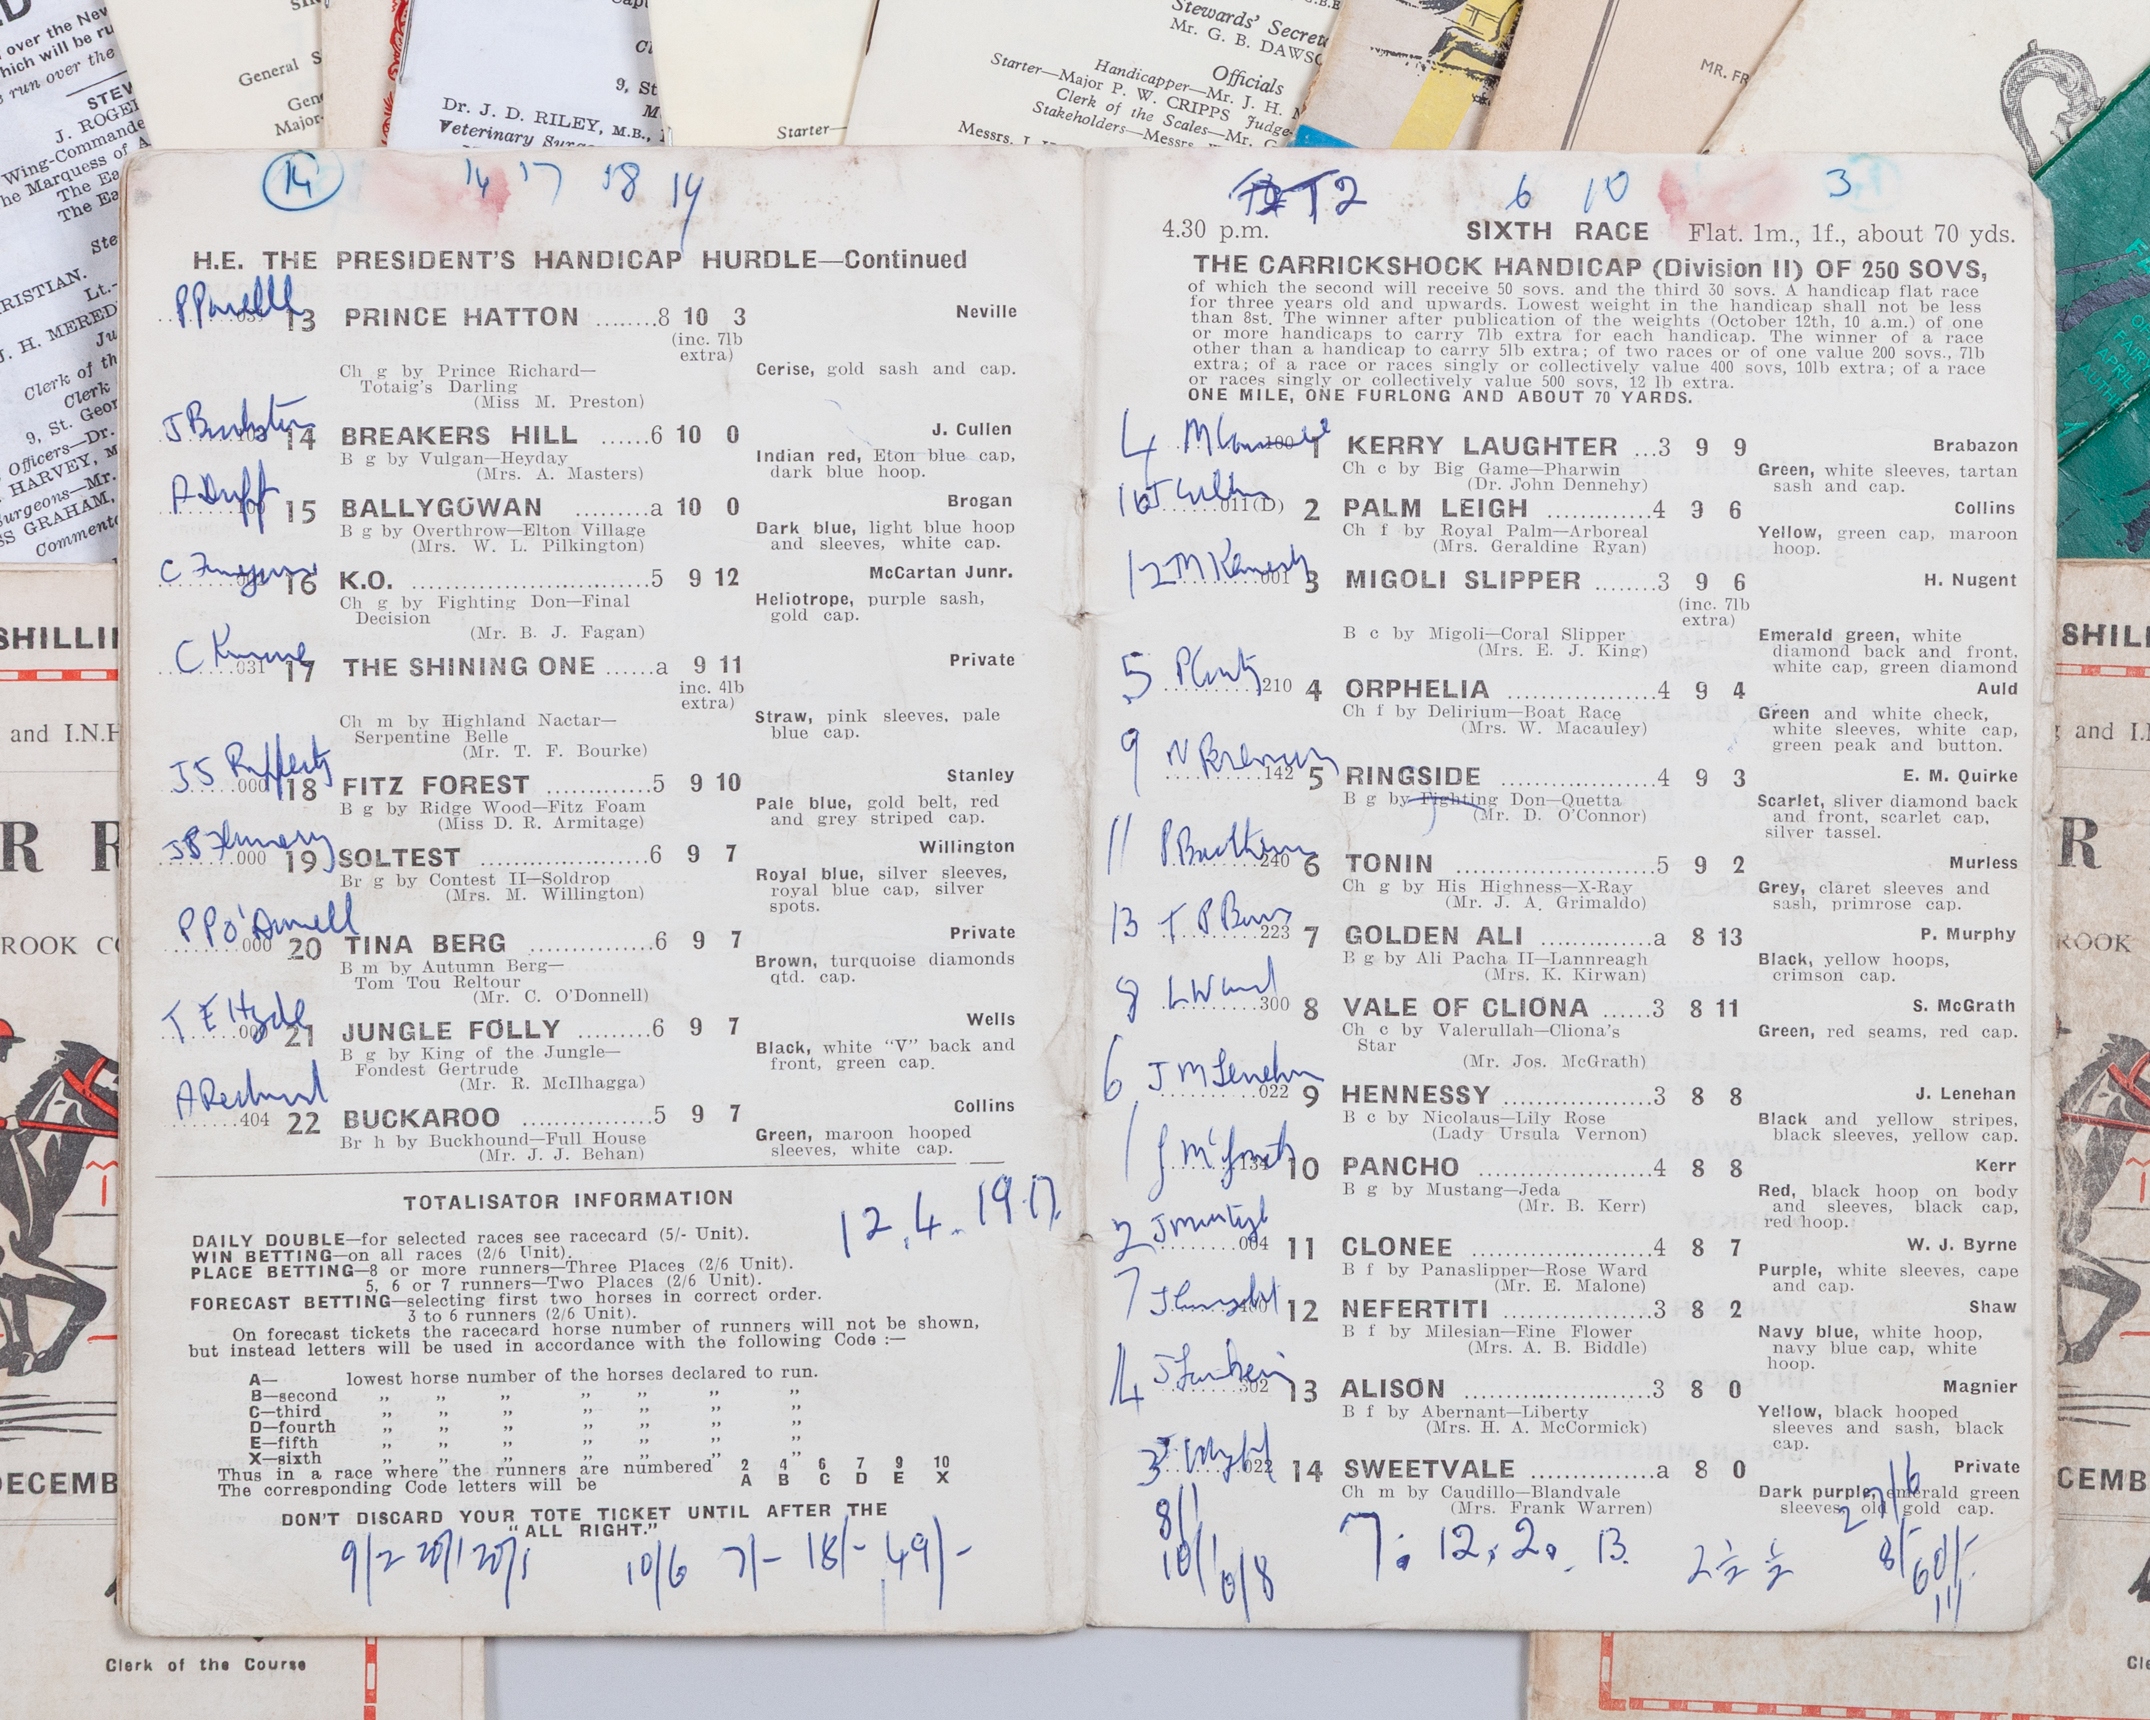 14 14 17 18 14
H.E. THE PRESIDENT'S HANDICAP HURDLE—Continued
13 PRINCE HATTON ........8 10 3 Neville
(inc. 7lb
extra)
Ch g by Prince Richard— Cerise, gold sash and cap.
Totaig's Darling
(Miss M. Preston)
14 BREAKERS HILL ......6 10 0 J. Cullen
B g by Vulgan—Heyday Indian red, Eton blue cap,
(Mrs. A. Masters) dark blue hoop.
A Duff
15 BALLYGOWAN .........a 10 0 Brogan
B g by Overthrow—Elton Village Dark blue, light blue hoop
(Mrs. W. L. Pilkington) and sleeves, white cap.
16 K.O. ..............................5 9 12 McCartan Junr.
Ch g by Fighting Don—Final Heliotrope, purple sash,
Decision gold cap.
(Mr. B. J. Fagan)
......031 17 THE SHINING ONE ......a 9 11 Private
inc. 4lb
extra)
Ch m by Highland Nactar— Straw, pink sleeves, pale
Serpentine Belle blue cap.
(Mr. T. F. Bourke)
J S Rafferty
......000 18 FITZ FOREST ...............5 9 10 Stanley
B g by Ridge Wood—Fitz Foam Pale blue, gold belt, red
(Miss D. R. Armitage) and grey striped cap.
......000 19 SOLTEST .....................6 9 7 Willington
Br g by Contest II—Soldrop Royal blue, silver sleeves,
(Mrs. M. Willington) royal blue cap, silver
spots.
P P O'Donnell
......000 20 TINA BERG ...............6 9 7 Private
B m by Autumn Berg— Brown, turquoise diamonds
Tom Tou Reltour qtd. cap.
(Mr. C. O'Donnell)
T E Hyde
21 JUNGLE FOLLY .........6 9 7 Wells
B g by King of the Jungle— Black, white "V" back and
Fondest Gertrude front, green cap.
(Mr. R. McIlhagga)
A Redmond
......404 22 BUCKAROO ...............5 9 7 Collins
Br h by Buckhound—Full House Green, maroon hooped
(Mr. J. J. Behan) sleeves, white cap.
TOTALISATOR INFORMATION
12.4.
DAILY DOUBLE—for selected races see racecard (5/- Unit).
WIN BETTING—on all races (2/6 Unit).
PLACE BETTING—8 or more runners—Three Places (2/6 Unit).
5, 6 or 7 runners—Two Places (2/6 Unit).
FORECAST BETTING—selecting first two horses in correct order.
3 to 6 runners (2/6 Unit).
On forecast tickets the racecard horse number of runners will not be shown,
but instead letters will be used in accordance with the following Code :—
A— lowest horse number of the horses declared to run.
B—second ,, ,, ,, ,, ,, ,, ,,
C—third ,, ,, ,, ,, ,, ,, ,,
D—fourth ,, ,, ,, ,, ,, ,, ,,
E—fifth ,, ,, ,, ,, ,, ,, ,,
X—sixth ,, ,, ,, ,, ,, ,, ,,
Thus in a race where the runners are numbered 2 4 6 7 9 10
The corresponding Code letters will be A B C D E X
DON'T DISCARD YOUR TOTE TICKET UNTIL AFTER THE
"ALL RIGHT."
9/2 20/1 20/1 10/6 7/- 18/- 49/-
T2 6 10 3
4.30 p.m. SIXTH RACE Flat. 1m., 1f., about 70 yds.
THE CARRICKSHOCK HANDICAP (Division II) OF 250 SOVS,
of which the second will receive 50 sovs. and the third 30 sovs. A handicap flat race
for three years old and upwards. Lowest weight in the handicap shall not be less
than 8st. The winner after publication of the weights (October 12th, 10 a.m.) of one
or more handicaps to carry 7lb extra for each handicap. The winner of a race
other than a handicap to carry 5lb extra; of two races or of one value 200 sovs., 7lb
extra; of a race or races singly or collectively value 400 sovs, 10lb extra; of a race
or races singly or collectively value 500 sovs, 12 lb extra.
ONE MILE, ONE FURLONG AND ABOUT 70 YARDS.
4
1 KERRY LAUGHTER ...3 9 9 Brabazon
Ch c by Big Game—Pharwin Green, white sleeves, tartan
(Dr. John Dennehy) sash and cap.
10
......011(D) 2 PALM LEIGH .............4 9 6 Collins
Ch f by Royal Palm—Arboreal Yellow, green cap, maroon
(Mrs. Geraldine Ryan) hoop.
12 M Kennedy
......001 3 MIGOLI SLIPPER ........3 9 6 H. Nugent
(inc. 7lb
extra)
B c by Migoli—Coral Slipper Emerald green, white
(Mrs. E. J. King) diamond back and front,
white cap, green diamond
5
......210 4 ORPHELIA ..................4 9 4 Auld
Ch f by Delirium—Boat Race Green and white check,
(Mrs. W. Macauley) white sleeves, white cap,
green peak and button.
9 N Brennan
......142 5 RINGSIDE ..................4 9 3 E. M. Quirke
B g by Fighting Don—Quetta Scarlet, sliver diamond back
(Mr. D. O'Connor) and front, scarlet cap,
silver tassel.
11
......240 6 TONIN ........................5 9 2 Murless
Ch g by His Highness—X-Ray Grey, claret sleeves and
(Mr. J. A. Grimaldo) sash, primrose cap.
13 T P Burns
......223 7 GOLDEN ALI .............a 8 13 P. Murphy
B g by Ali Pacha II—Lannreagh Black, yellow hoops,
(Mrs. K. Kirwan) crimson cap.
8 L Ward
......300 8 VALE OF CLIONA ......3 8 11 S. McGrath
Ch c by Valerullah—Cliona's Green, red seams, red cap.
Star
(Mr. Jos. McGrath)
6 J M Lenehan
......022 9 HENNESSY ..................3 8 8 J. Lenehan
B c by Nicolaus—Lily Rose Black and yellow stripes,
(Lady Ursula Vernon) black sleeves, yellow cap.
1
10 PANCHO .....................4 8 8 Kerr
B g by Mustang—Jeda Red, black hoop on body
(Mr. B. Kerr) and sleeves, black cap,
red hoop.
2
......004 11 CLONEE .....................4 8 7 W. J. Byrne
B f by Panaslipper—Rose Ward Purple, white sleeves, cape
(Mr. E. Malone) and cap.
7
12 NEFERTITI ..................3 8 2 Shaw
B f by Milesian—Fine Flower Navy blue, white hoop,
(Mrs. A. B. Biddle) navy blue cap, white
hoop.
14
......302 13 ALISON .....................3 8 0 Magnier
B f by Abernant—Liberty Yellow, black hooped
(Mrs. H. A. McCormick) sleeves and sash, black
cap.
3
......022 14 SWEETVALE ...............a 8 0 Private
Ch m by Caudillo—Blandvale Dark purple, emerald green
(Mrs. Frank Warren) sleeves, old gold cap.
8/1 27/6
10/1 7: 12, 2, 13. 2½ ½ 8/- 60/-
STEW
J. ROGE
Wing-Commande
The Marquess of A
General S
Gen
Major-
9, St
Dr. J. D. RILEY, M.B.,
Veterinary Surge
Starter—
Stewards' Secret
Mr. G. B. DAWSO
Officials
Handicapper—Mr. J. H.
Starter—Major P. W. CRIPPS Judge-
Clerk of the Scales—Mr.
Stakeholders—Messrs.
MR. FR
RISTIAN.
J. H. MERED
Clerk of th
Clerk
9, St. Geor
Officers—Dr.
HARVEY, M
urgeons—Mr.
SS GRAHAM,
Commento
SHILLI
and I.N.H
R R
ROOK CO
DECEMB
Clerk of the Course
SHILL
and I.
R
ROOK
CEMB
Cle